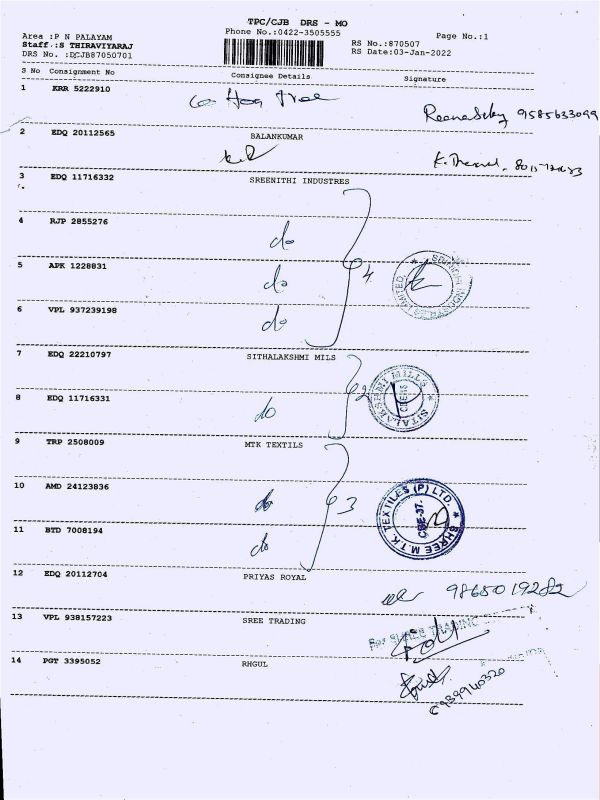 TPC/CJB DRS - MO
Area :P N PALAYAM Phone No.:0422-3505555 Page No.:1
Staff.:S THIRAVIYARAJ RS No.:870507
DRS No. :DCJB87050701 RS Date:03-Jan-2022
S No Consignment No Consignee Details Signature
1 KRR 5222910
9585633099
2 EDQ 20112565 BALANKUMAR
3 EDQ 11716332 SREENITHI INDUSTRES
4 RJP 2855276 do
5 APK 1228831 do
4
6 VPL 937239198 do
7 EDQ 22210797 SITHALAKSHMI MILS
2 SITALAKSHMI MILLS
8 EDQ 11716331 do
9 TRP 2508009 MTK TEXTILS
10 AMD 24123836 do
3 SHREE M.T.K. TEXTILES (P) LTD. CBE-37.
11 BTD 7008194 do
12 EDQ 20112704 PRIYAS ROYAL
9865019282
13 VPL 938157223 SREE TRADING
14 PGT 3395052 RHGUL